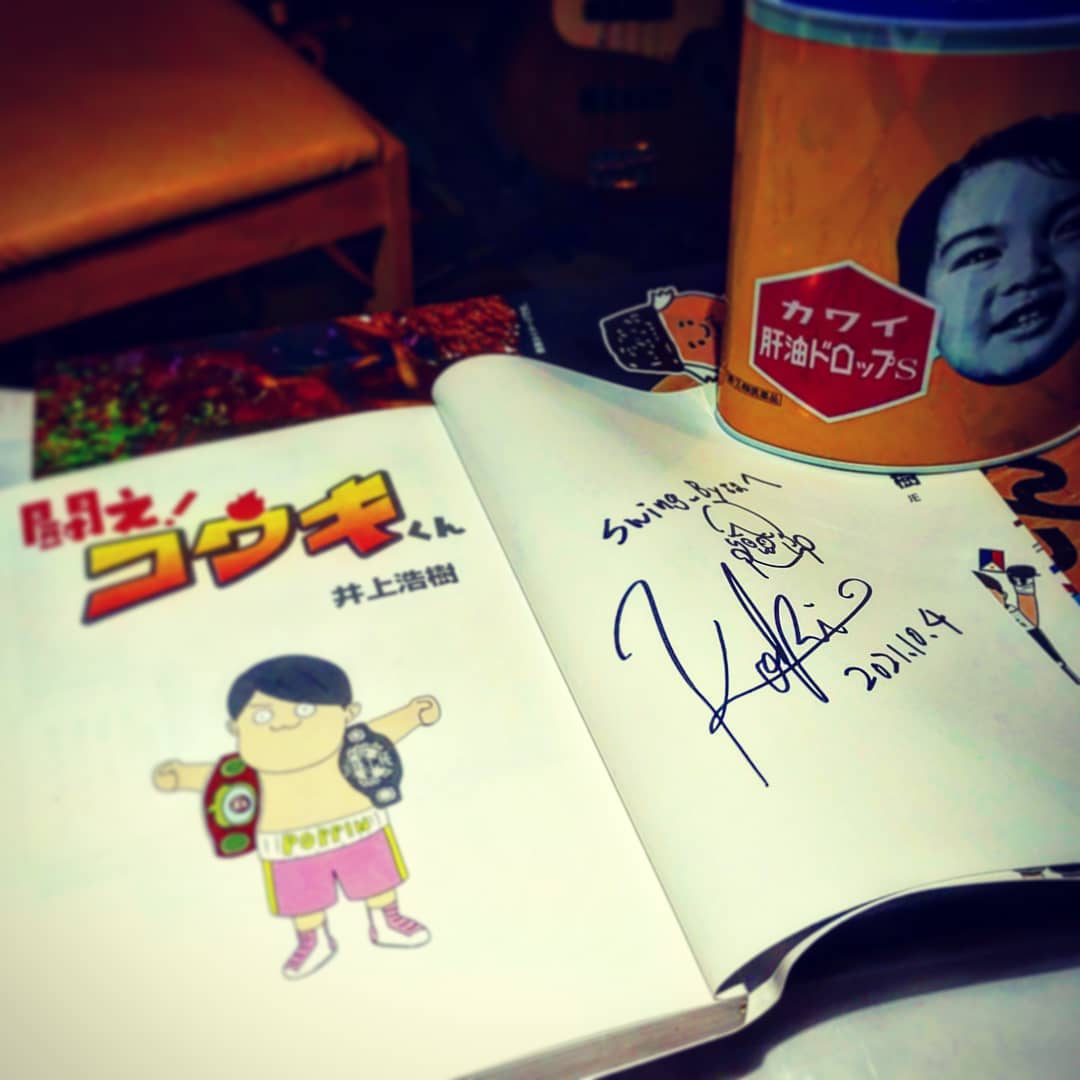 闘え!
コウキくん
井上浩樹
POPPIN
カワイ
肝油ドロップS
swing_Byさんへ
Koki
2021.10.4